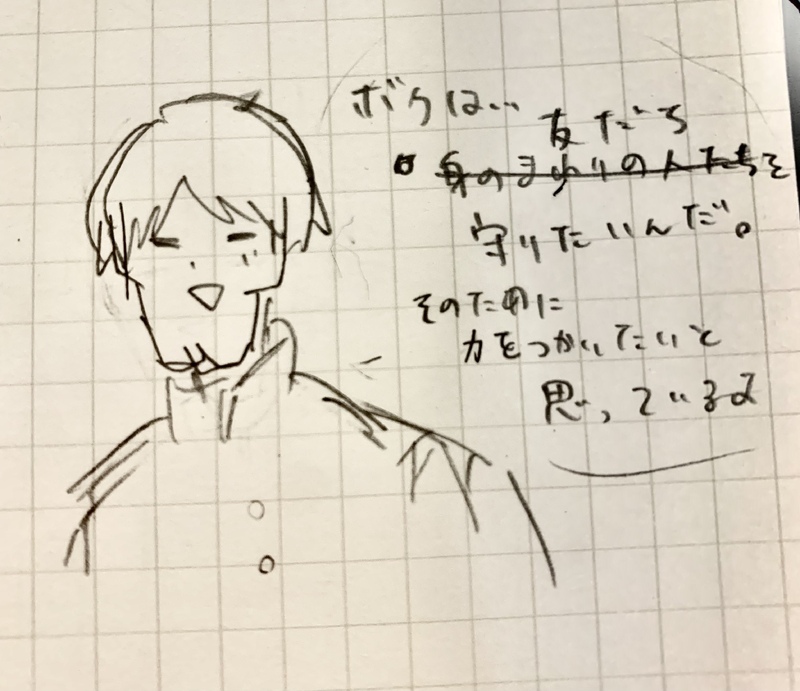 ボクは…
友だち
身のまわりの人たちを
守りたいんだ。
そのために
力をつかいたいと
思っているよ